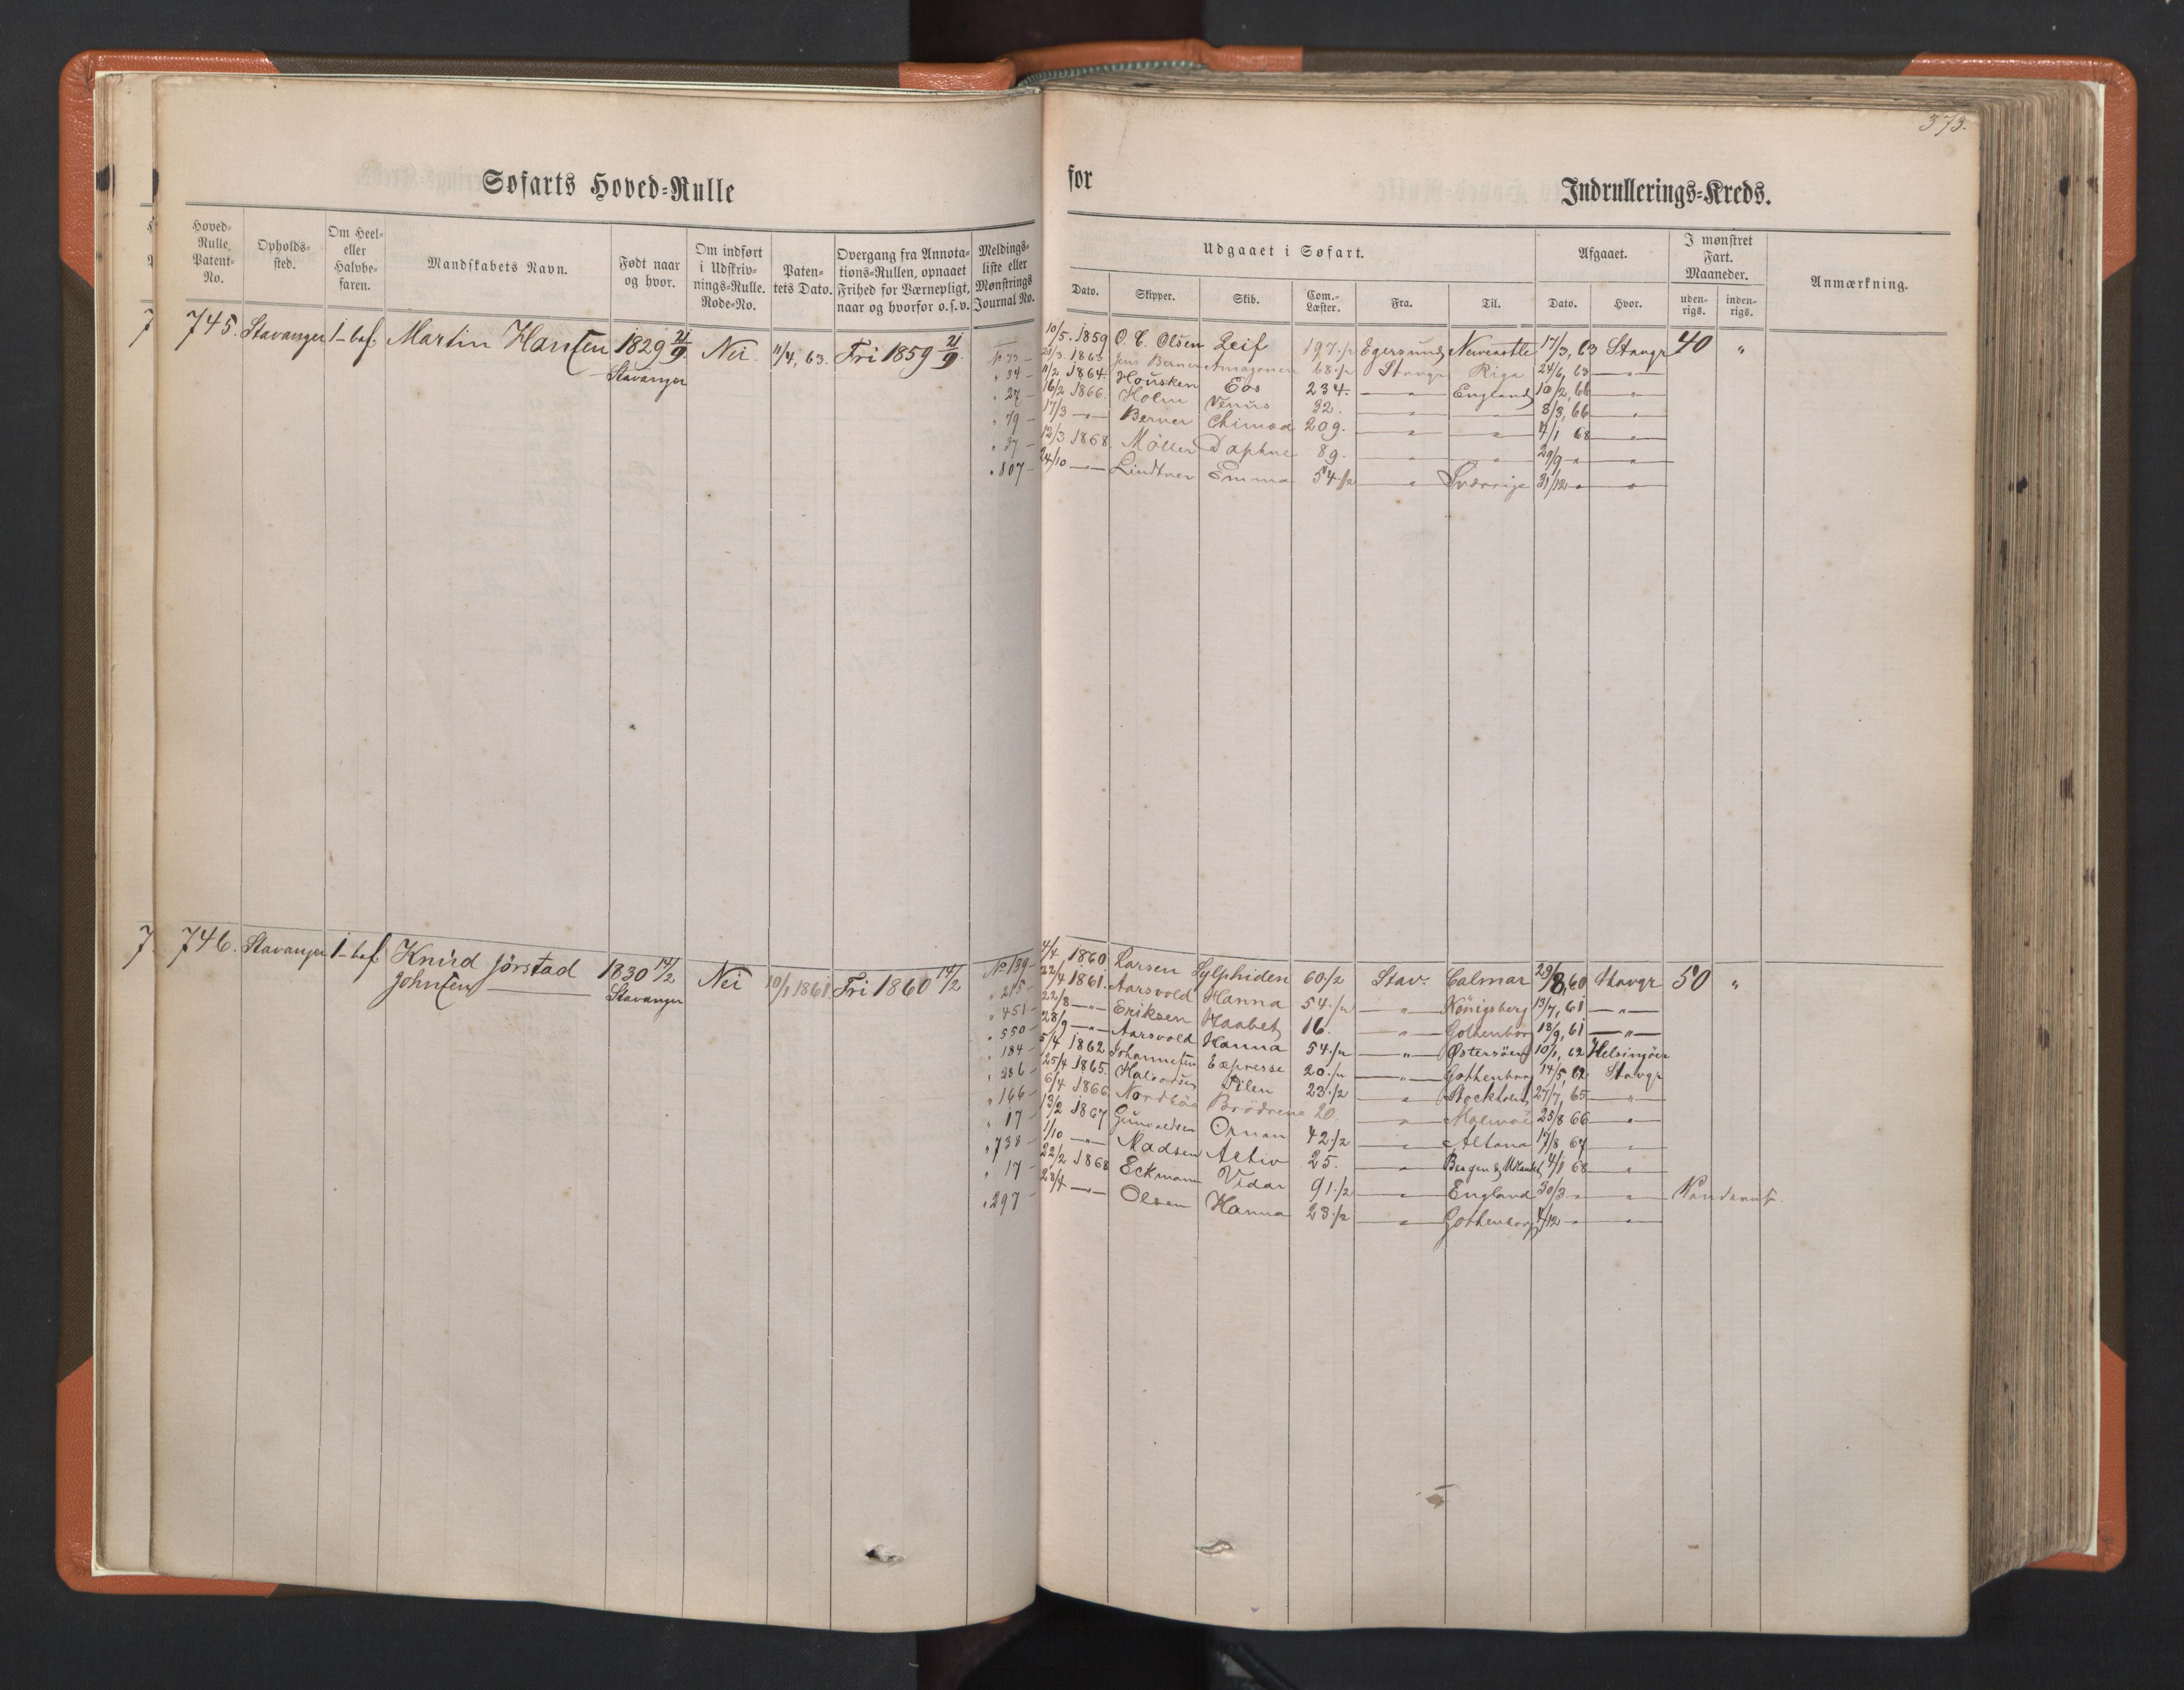 373.
Søfarts Hoved=Rulle
for
Indrullerings=Kreds.
Hoved=Rulle, Patent=No.
Opholds=sted.
Om Heel= eller Halvbe=faren.
Mandskabets Navn.
Født naar og hvor.
Om indført i Udskriv=nings=Rulle. Rode=No.
Paten=tets Dato.
Overgang fra Annota=tions=Rullen, opnaaet Frihed for Værnepligt, naar og hvorfor o.s.v.
Meldings=liste eller Mønstrings Journal No.
Udgaaet i Søfart.
Afgaaet.
I mønstret Fart. Maaneder.
Anmærkning.
Dato. Skipper. Skib. Com.=Læster. Fra. Til. Dato. Hvor. uden=rigs. inden=rigs.
745. Stavanger 1-bef. Martin Hansen 1829 21/9 Stavanger Nei 11/4, 63. Fri 1859 21/9.
— 10/5. 1859 O. C. Olsen Leif 197./2 Egersund Newcastle 17/3, 63 Stavgr 40 "
No 73 – 25/3. 1863 Jens Berner Amagonen 68./2 Stavgr Riga 24/6, 63 — " —
" 34 – 11/2 1864. Housken Eos 234. — " — England 10/2, 66 — " —
" 27 – 16/2 1866. Holm Venus 32. — " — — " — 8/3, 66 — " —
" 79 – 17/3 — " — Berner Chimæd 209. — " — — " — 4/1 68 — " —
" 37 – 12/3 1868. Möller Daphne 89. — " — — " — 29/9 — " — — " —
" 807 – 24/10 — " — Lindtner Emma 54./2 — " — Sverrige 31/12 — " — — " —
746. Stavanger 1-bef Knud Jörstad Johnsen 1830 14/2 Stavanger Nei 10/1 1861. Fri 1860 14/2
No 139 – 4/4 1860 Larsen Sylphiden 60/2 Stav. Calmar 29/8, 60 Stavgr 50 "
" 215 – 22/4 1861. Aarsvold Hanna 54./2 — " — Königsberg 13/7, 61 — " —
" 451 – 22/8 — " — Eriksen Haabet 16. — " — Gothenborg 18/9, 61 — " —
" 550 – 28/9 — " — Aarsvold Hanna 54./2 — " — Østersöen 10/1, 62 Helsingöer
" 184 – 5/4 1862 Johannesen Expresse 20./2 — " — Gothenborg 14/5, 62 Stavgr
" 286 – 25/4 1865. Halvorsen Pilen 23./2 — " — Stockholm 27/7, 65 — " —
" 166 – 6/4 1866. Nordböe Brödrene 20. — " — Malmöe 25/8 66 — " —
" 17 – 13/2 1867 Gunvaldsen Ornan 42./2 — " — Altona 17/8 67 — " —
" 738 – 1/10 — " — Madsen Activ 25. — " — Bergen & Udlandet 4/1 68 — " —
" 17 – 22/2 1868 Eckmann Vidar 91./2 — " — England 30/3 — " — — " —
" 297 – 23/4 — " — Olsen Hanna 23./2 — " — Gothenborg 4/12 — " — — " —